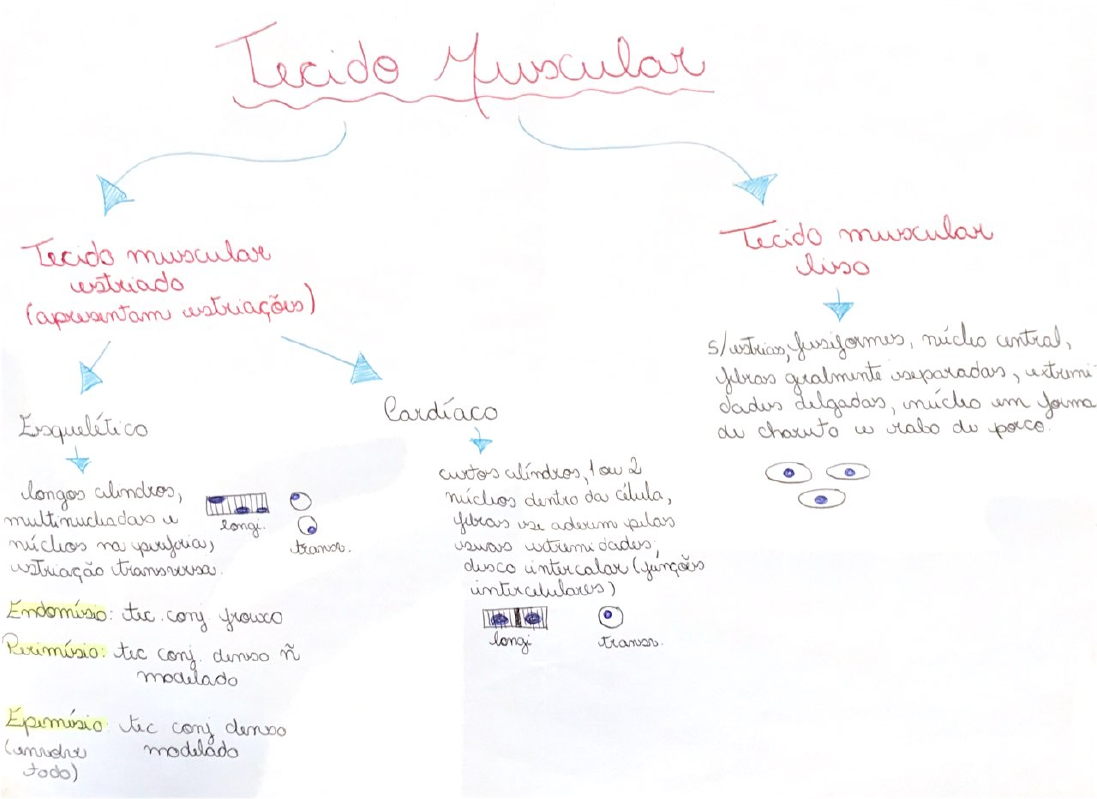 Tecido Muscular
Tecido muscular
estriado
(apresentam estriações)
Esquelético
longos cilindros,
multinucleadas e
núcleos na periferia,
estriação transversa.
longi.
transv.
Endomísio: tec. conj frouxo
Perimísio: tec conj. denso ñ
modelado
Epimísio: tec conj denso
(envolve modelado
todo)
Cardíaco
curtos cilindros, 1 ou 2
núcleos dentro da célula,
fibras se aderem pelas
suas extremidades,
disco intercalar (junções
intercelulares)
longi
transv.
Tecido muscular
liso
s/estrias, fusiformes, núcleo central,
fibras geralmente separadas, extremi-
dades delgadas, núcleo em forma
de charuto e rabo de porco.